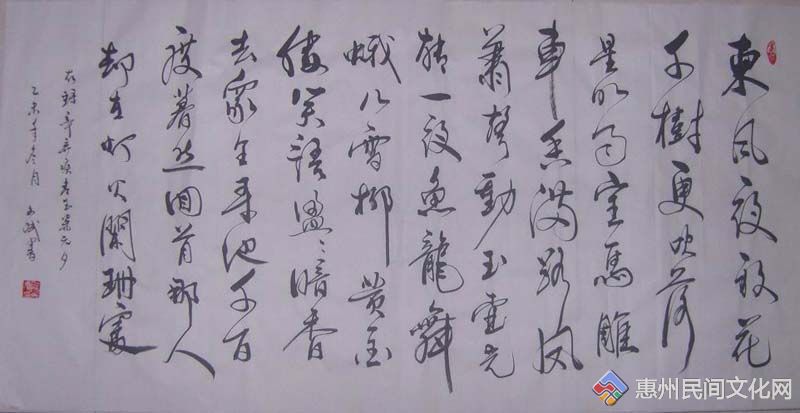 東风夜放花
千樹更吹落
星如雨宝馬雕
車香满路凤
蕭聲動玉壶光
转一夜魚龍舞
蛾儿雪柳黄金
缕笑語盈〻暗香
去衆里尋他千百
度蓦然回首那人
却在灯火闌珊處
右録辛弃疾青玉案元夕
乙未年冬月
惠州民间文化网